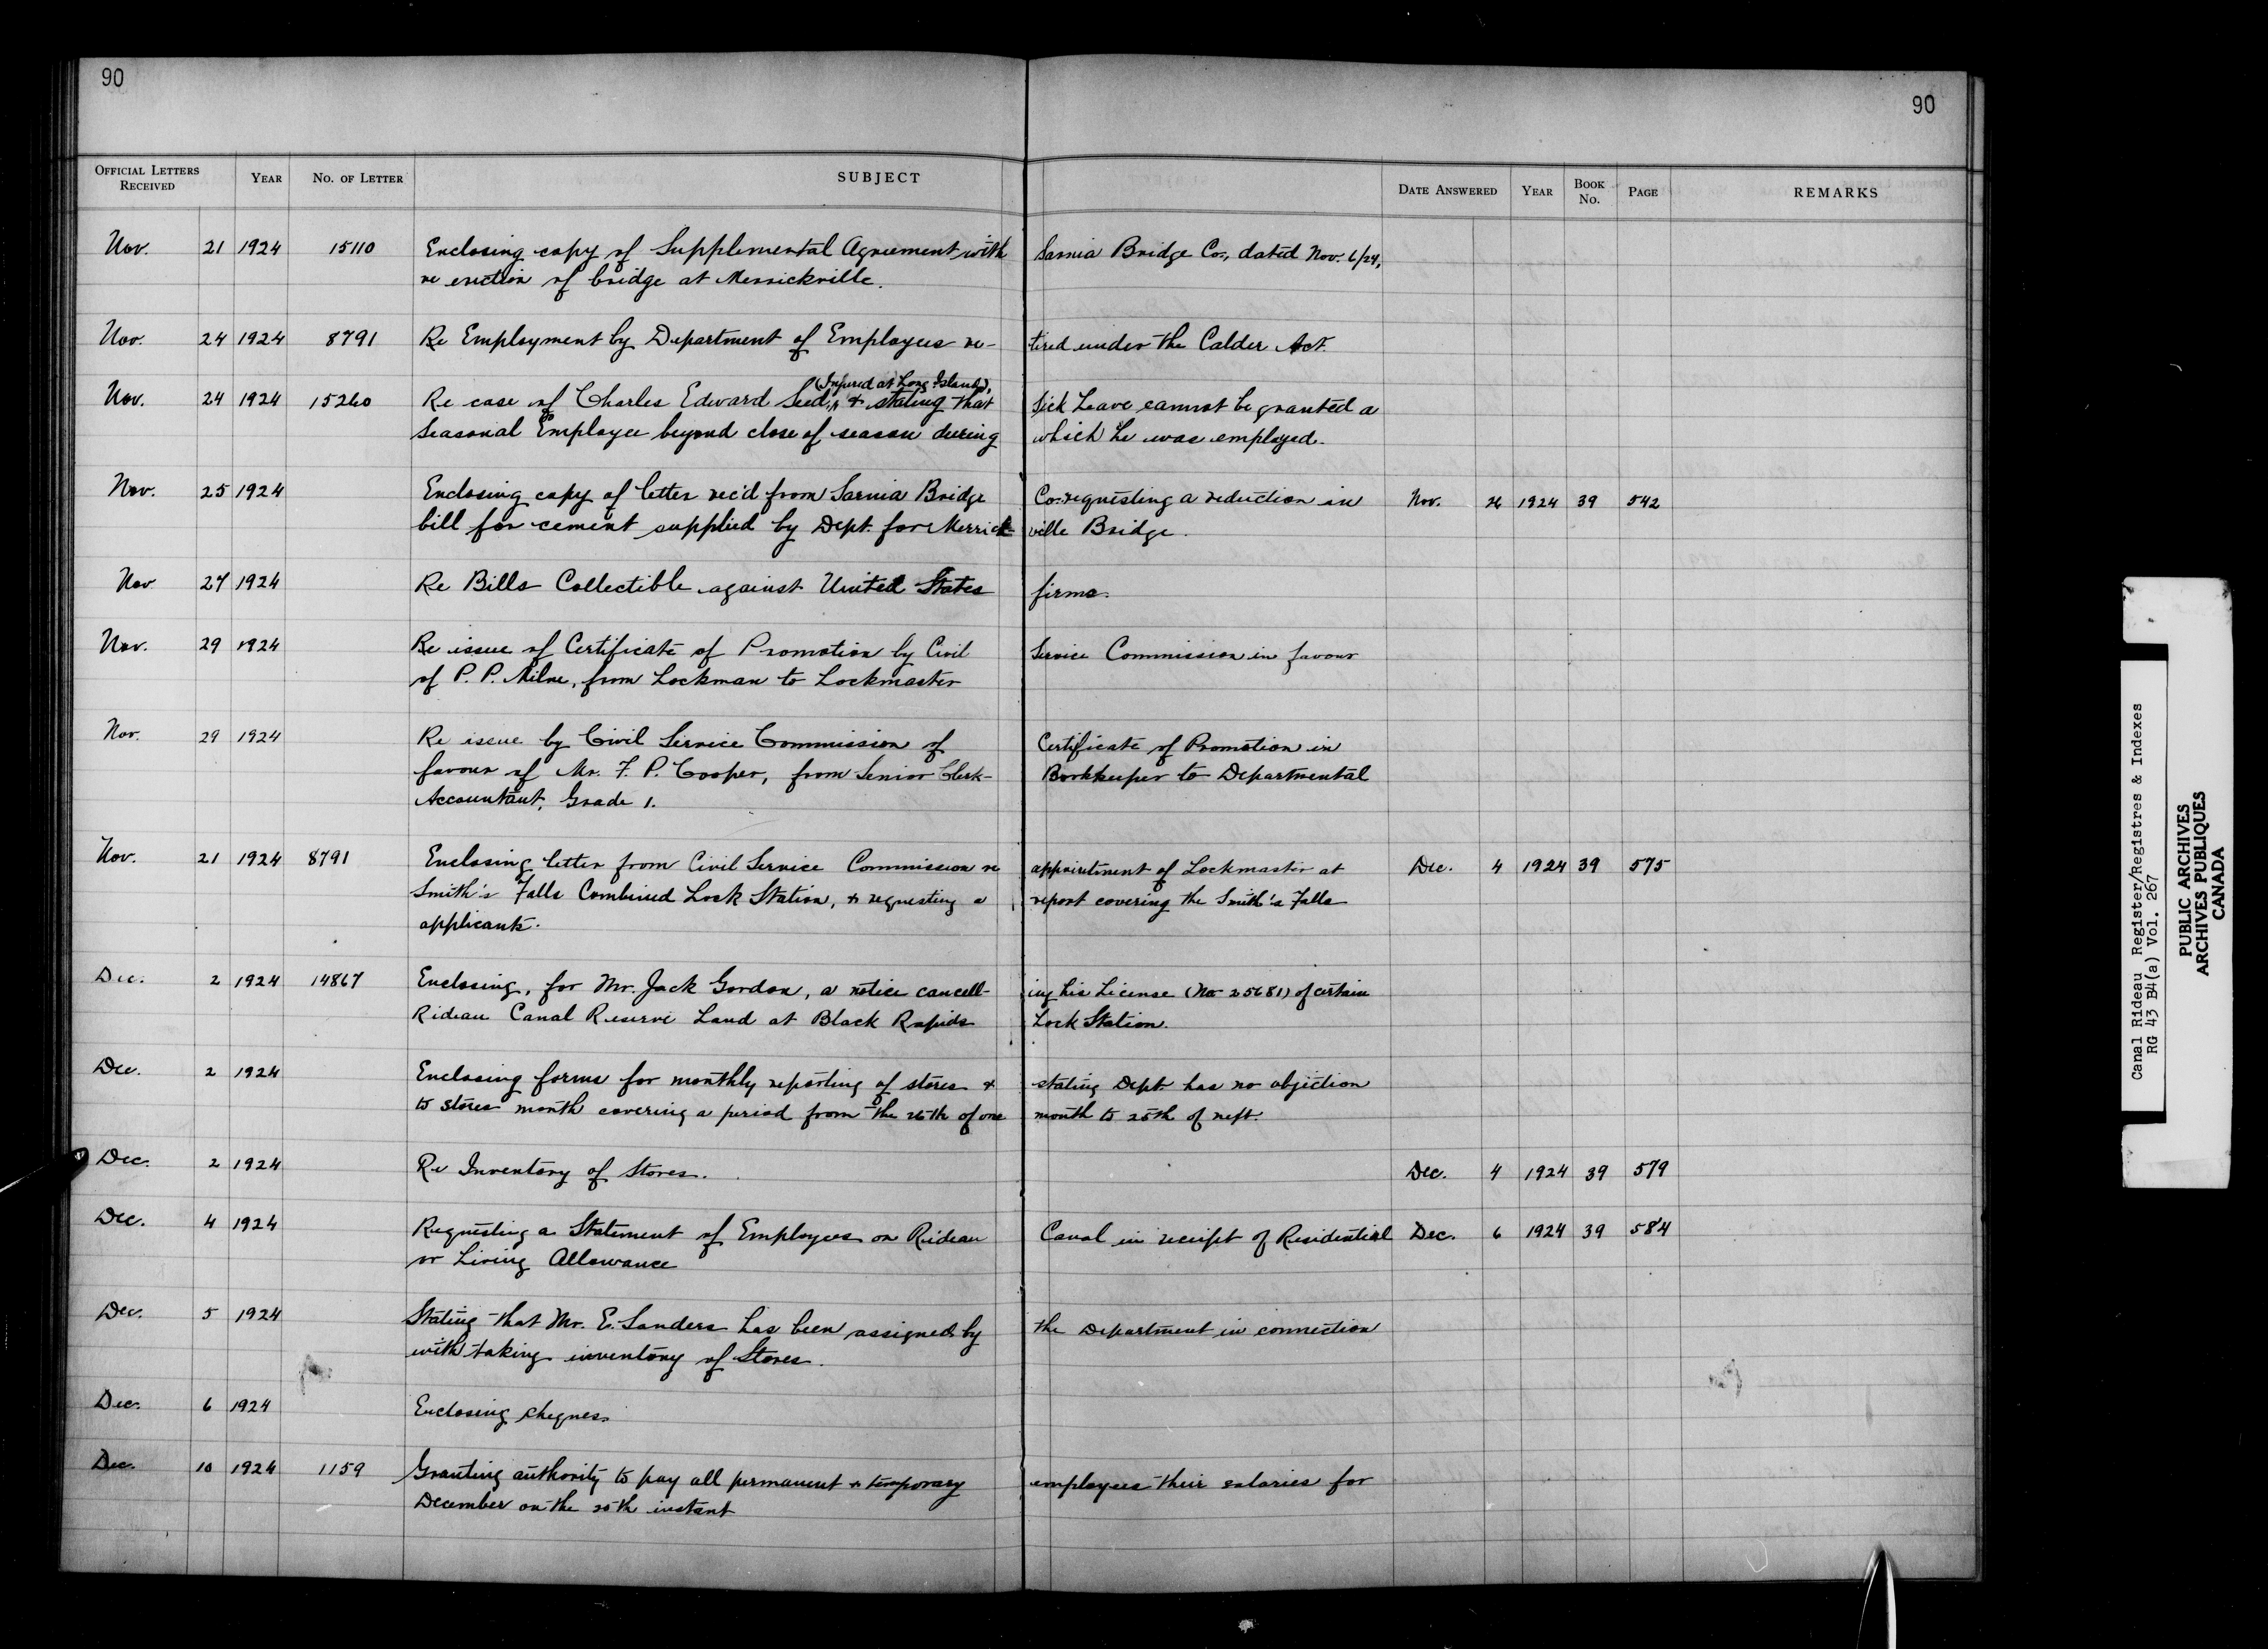 90
90
OFFICIAL LETTERS RECEIVED YEAR NO. OF LETTER SUBJECT DATE ANSWERED YEAR BOOK NO. PAGE REMARKS
Nov. 21 1924 15110 Enclosing copy of Supplemental Agreement with Sarnia Bridge Co., dated Nov. 6/24,
re erection of bridge at Merrickville.
Nov. 24 1924 8791 Re Employment by Department of Employees re- tired under the Calder Act.
(Injured at Long Island),
Nov. 24 1924 15260 Re case of Charles Edward Seed, & stating that Sick Leave cannot be granted a
Seasonal Employee beyond close of season during which he was employed.
Nov. 25 1924 Enclosing copy of letter rec'd from Sarnia Bridge Co. requesting a reduction in Nov. 26 1924 39 542
bill for cement supplied by Dept. for Merrick- ville Bridge.
Nov 27 1924 Re Bills Collectible against United States firms.
Nov. 29 1924 Re issue of Certificate of Promotion by Civil Service Commission in favour
of P. P. Milne, from Lockman to Lockmaster
Nov. 29 1924 Re issue by Civil Service Commission of Certificate of Promotion in
favour of Mr. F. P. Cooper, from Senior Clerk- Bookkeeper to Departmental
Accountant, Grade 1.
Nov. 21 1924 8791 Enclosing letter from Civil Service Commission re appointment of Lockmaster at Dec. 4 1924 39 575
Smith's Falls Combined Lock Station, & requesting a report covering the Smith's Falls
applicants.
Dec. 2 1924 14867 Enclosing, for Mr. Jack Gordon, a notice cancell- ing his License (No 25681) of certain
Rideau Canal Reserve Land at Black Rapids Lock Station.
Dec. 2 1924 Enclosing forms for monthly reporting of stores & stating Dept. has no objection
to stores month covering a period from the 26th of one month to 25th of next.
Dec. 2 1924 Re Inventory of Stores. Dec. 4 1924 39 579
Dec. 4 1924 Requesting a Statement of Employees on Rideau Canal in receipt of Residential Dec. 6 1924 39 584
or Living Allowance
Dec. 5 1924 Stating that Mr. E. Sanders has been assigned by the Department in connection
with taking inventory of Stores.
Dec. 6 1924 Enclosing cheques
Dec. 10 1924 1159 Granting authority to pay all permanent & temporary employees their salaries for
December on the 20th instant
Canal Rideau Register/Registres & Indexes
RG 43 B4(a) Vol. 267
PUBLIC ARCHIVES
ARCHIVES PUBLIQUES
CANADA